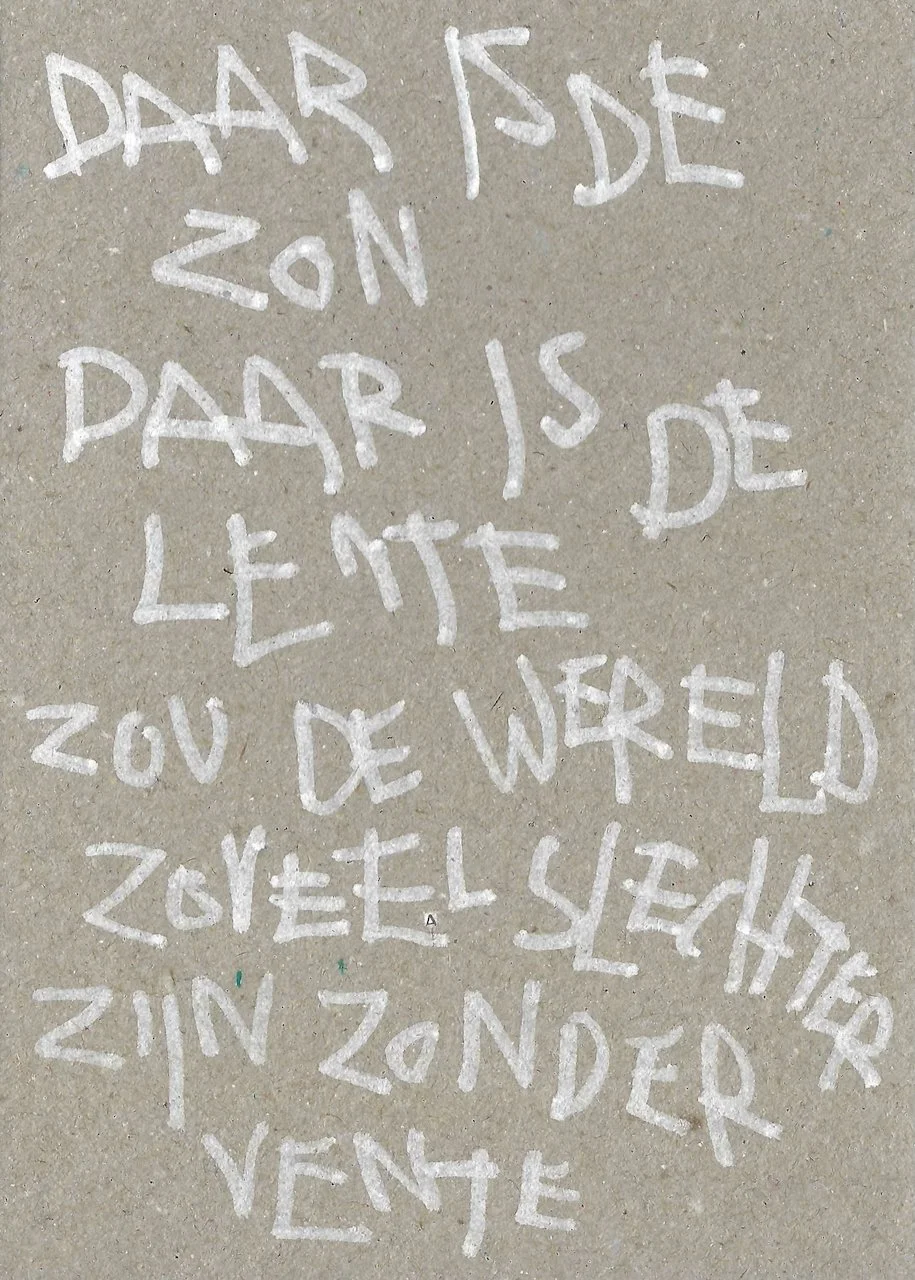 DAAR IS DE
ZON
DAAR IS DE
LENTE
ZOU DE WERELD
ZOVEEL SLECHTER
ZIJN ZONDER
VENTE